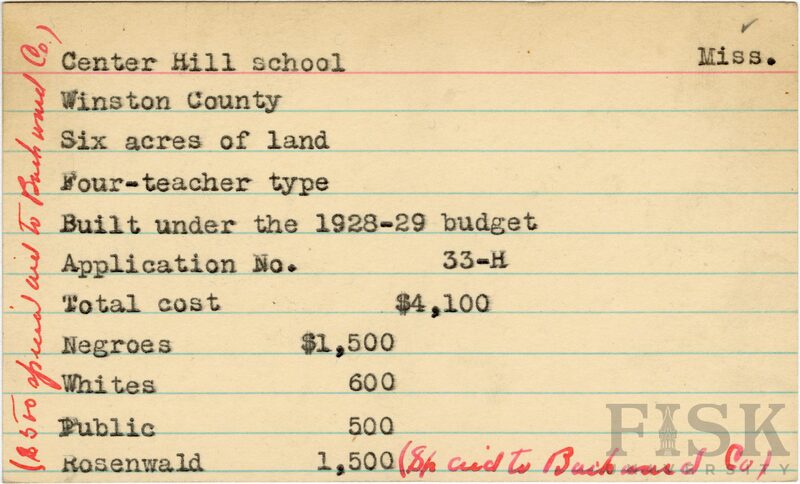 Center Hill school Miss.
Winston County
Six acres of land
Four-teacher type
Built under the 1928-29 budget
Application No. 33-H
Total cost $4,100
Negroes $1,500
Whites 600
Public 500
Rosenwald 1,500 (Sp aid to Backward Co.)
($500 special aid to Backward Co.)
FISK
UNIVERSITY